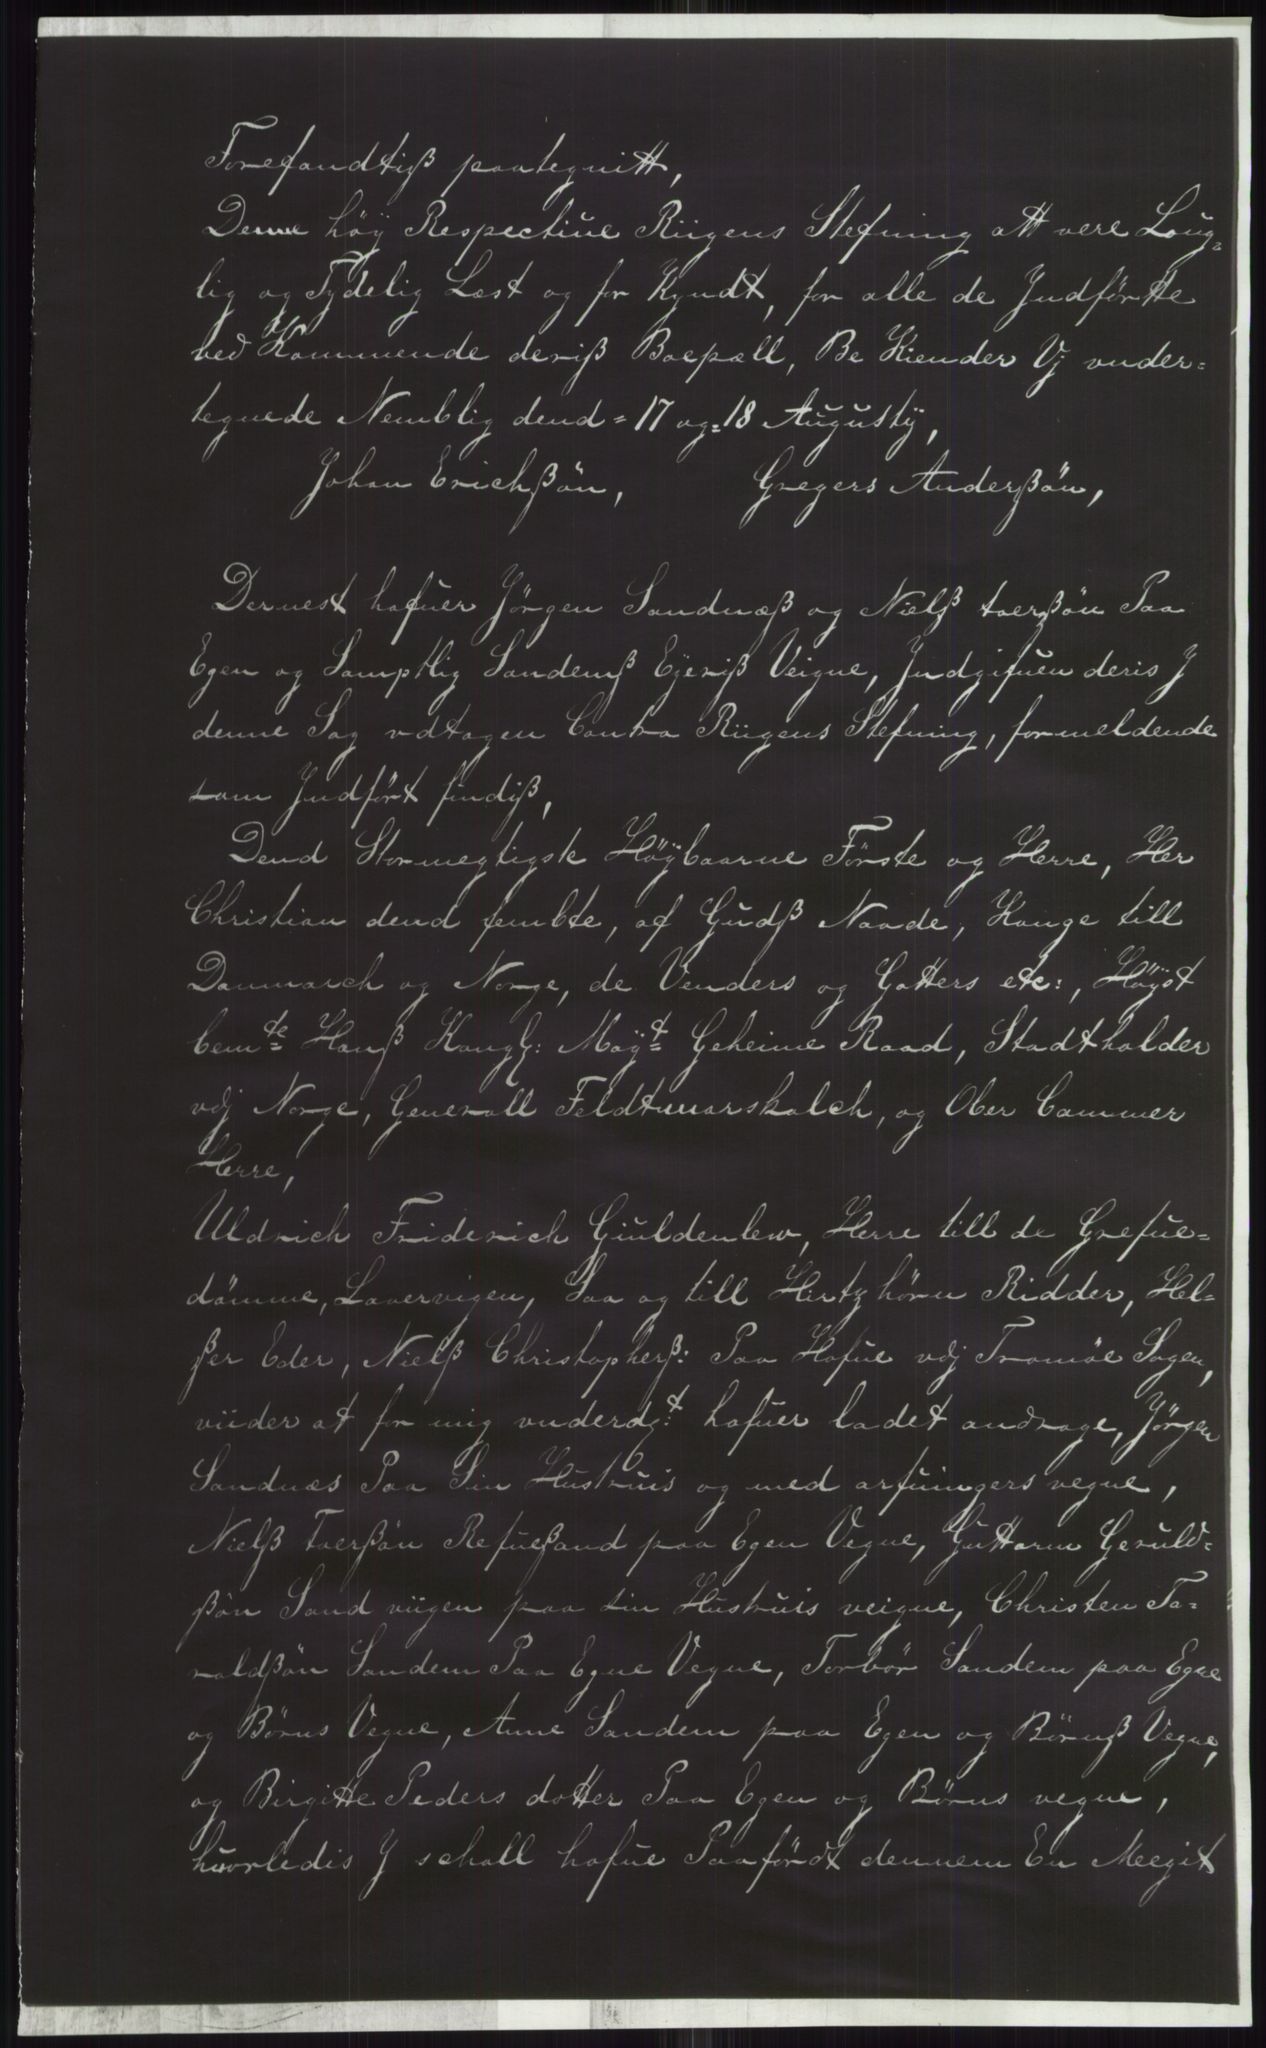 Forefandtiß paategnitt,
Denne höÿ Respectiue Riigens Stefning att vere Loug=
lig og Tydelig Læst og for Kyndt, for alle de Jndförtte
ved Kommende deriß Boepæll, Be Kiender Vj vnder=
tegnede Nemblig dend = 17 og = 18 Augusty,
Johan Erichßön, Gregers Anderßön,
Dernest hafuer Jörgen Sandnæß og Nielß taerßön Paa
Egen og Samptlig Sandemß Eÿeriß Veigne, Jndgifuen deris J
denne Sag vdtagen Contra Riigens Stefning, formeldende
som Jndfört findiß,
Dend Stormegtigste Höÿbaarne Förste og Herre, Her
Christian dend fembte, af Gudß Naade, Konge till
Danmarch og Norge, de Venders og Gotters etc:, Höÿst
bem te Hanß Kongl: Maÿt Geheime Raad, Stadtholder
vdj Norge, Generall Feldtmarskalch, og Ober Cammer
Herre,
Uldrich Friderich Giuldenlew, Herre till de Grefue=
dömme, Laaervigen, Saa og till Hirtzhörn Ridder, Hel=
ßer Eder, Nielß Christopherß: Paa Hafue vdj Tromöe Sogen,
viider at for mig vnderdgt: hafuer ladet andrage, Jörgen
Sandnæs Paa Sin Hustruis og med arfuingers vegne,
Nielß Taerßön Refueßand paa Egen Vegne, Guttorm Geruld=
ßön Sand viigen paa sin Hustruis veigne, Christen Ta=
raldßön Sandem Paa Egne Vegne, Torbör Sandem paa Egne
og Börns Vegne, Anne Sandem paa Egen og Börnß Vegne,
og Birgitte Peders dotter Paa Egen og Börns vegne,
huorledis J schall hafue Paafördt dennem En Meegit